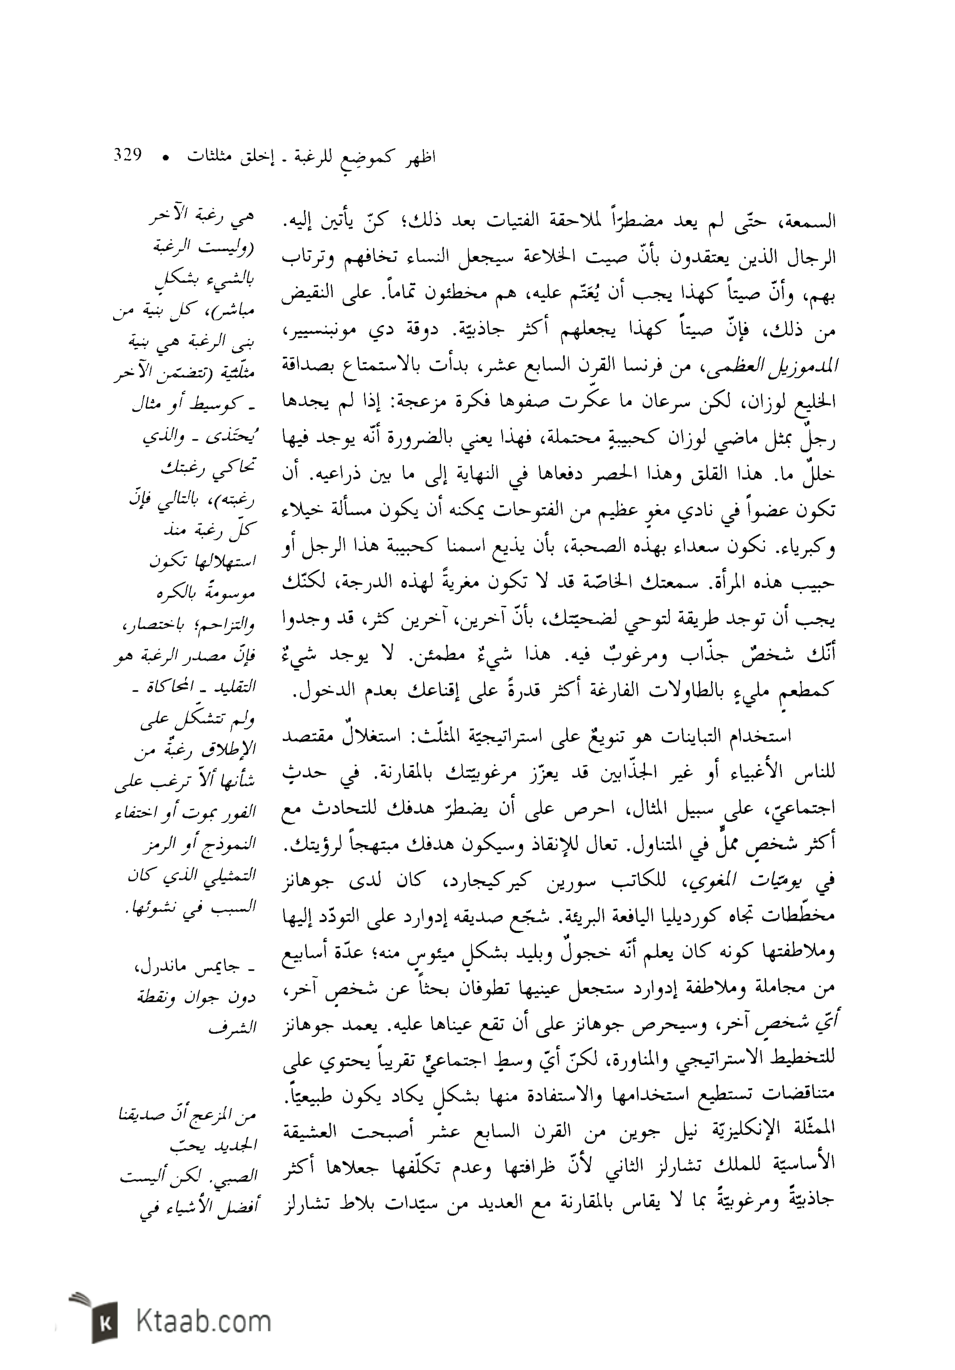 اظهر كموضِعٍ للرغبة ـ إخلق مثلثات • 329
السمعة، حتّى لم يعد مضطرّاً لملاحقة الفتيات بعد ذلك؛ كنّ يأتين إليه.
الرجال الذين يعتقدون بأنّ صيت الخلاعة سيجعل النساء تخافهم وترتاب
بهم، وأنّ صيتاً كهذا يجب أن يُعَتّم عليه، هم مخطئون تماماً. على النقيض
من ذلك، فإنّ صيتاً كهذا يجعلهم أكثر جاذبيّة. دوقة دي مونبنسيير،
المدموزيل العظمى، من فرنسا القرن السابع عشر، بدأت بالاستمتاع بصداقة
الخليع لوزان، لكن سرعان ما عكّرت صفوها فكرة مزعجة: إذا لم يجدها
رجلٌ بمثل ماضي لوزان كحبيبةٍ محتملة، فهذا يعني بالضرورة أنّه يوجد فيها
خللٌ ما. هذا القلق وهذا الحصر دفعاها في النهاية إلى ما بين ذراعيه. أن
تكون عضواً في نادي مغوٍ عظيم من الفتوحات يمكنه أن يكون مسألة خيلاء
وكبرياء. نكون سعداء بهذه الصحبة، بأن يذيع اسمنا كحبيبة هذا الرجل أو
حبيب هذه المرأة. سمعتك الخاصّة قد لا تكون مغريةً لهذه الدرجة، لكنّك
يجب أن توجد طريقة لتوحي لضحيّتك، بأنّ آخرين، آخرين كثر، قد وجدوا
أنّك شخصٌ جذّاب ومرغوبٌ فيه. هذا شيءٌ مطمئن. لا يوجد شيءٌ
كمطعمٍ مليءٍ بالطاولات الفارغة أكثر قدرةً على إقناعك بعدم الدخول.
استخدام التباينات هو تنويعٌ على استراتيجيّة المثلّث: استغلالٌ مقتصد
للناس الأغبياء أو غير الجذّابين قد يعزّز مرغوبيّتك بالمقارنة. في حدثٍ
اجتماعيّ، على سبيل المثال، احرص على أن يضطرّ هدفك للتحادث مع
أكثر شخصٍ مملٍّ في المتناول. تعال للإنقاذ وسيكون هدفك مبتهجاً لرؤيتك.
في يوميّات المغوي، للكاتب سورين كيركيجارد، كان لدى جوهانز
مخطّطات تجاه كورديليا اليافعة البريئة. شجّع صديقه إدوارد على التودّد إليها
وملاطفتها كونه كان يعلم أنّه خجولٌ وبليد بشكلٍ ميئوس منه؛ عدّة أسابيع
من مجاملة وملاطفة إدوارد ستجعل عينيها تطوفان بحثاً عن شخصٍ آخر،
أيّ شخصٍ آخر، وسيحرص جوهانز على أن تقع عيناها عليه. يعمد جوهانز
للتخطيط الاستراتيجي والمناورة، لكنّ أيّ وسطٍ اجتماعيٍّ تقريباً يحتوي على
متناقضات تستطيع استخدامها والاستفادة منها بشكلٍ يكاد يكون طبيعيّاً.
الممثّلة الإنكليزيّة نيل جوين من القرن السابع عشر أصبحت العشيقة
الأساسيّة للملك تشارلز الثاني لأنّ ظرافتها وعدم تكلّفها جعلاها أكثر
جاذبيّةً ومرغوبيّةً بما لا يقاس بالمقارنة مع العديد من سيّدات بلاط تشارلز
هي رغبة الآخر
(وليست الرغبة
بالشيء بشكلٍ
مباشر)، كل بنية من
بنى الرغبة هي بنية
مثلّثية (تتضمّن الآخر
ـ كوسيط أو مثال
يُحتَذى ـ والذي
تحاكي رغبتك
رغبته)، بالتالي فإنّ
كلّ رغبة منذ
استهلالها تكون
موسومةً بالكره
والتزاحم؛ باختصار،
فإنّ مصدر الرغبة هو
التقليد ـ المحاكاة ـ
ولم تتشكّل على
الإطلاق رغبةٌ من
شأنها ألاّ ترغب على
الفور بموت أو اختفاء
النموذج أو الرمز
التمثيلي الذي كان
السبب في نشوئها.
ـ جايمس ماندرل،
دون جوان ونقطة
الشرف
من المزعج أنّ صديقنا
الجديد يحبّ
الصبي. لكن أليست
أفضل الأشياء في
Ktaab.com